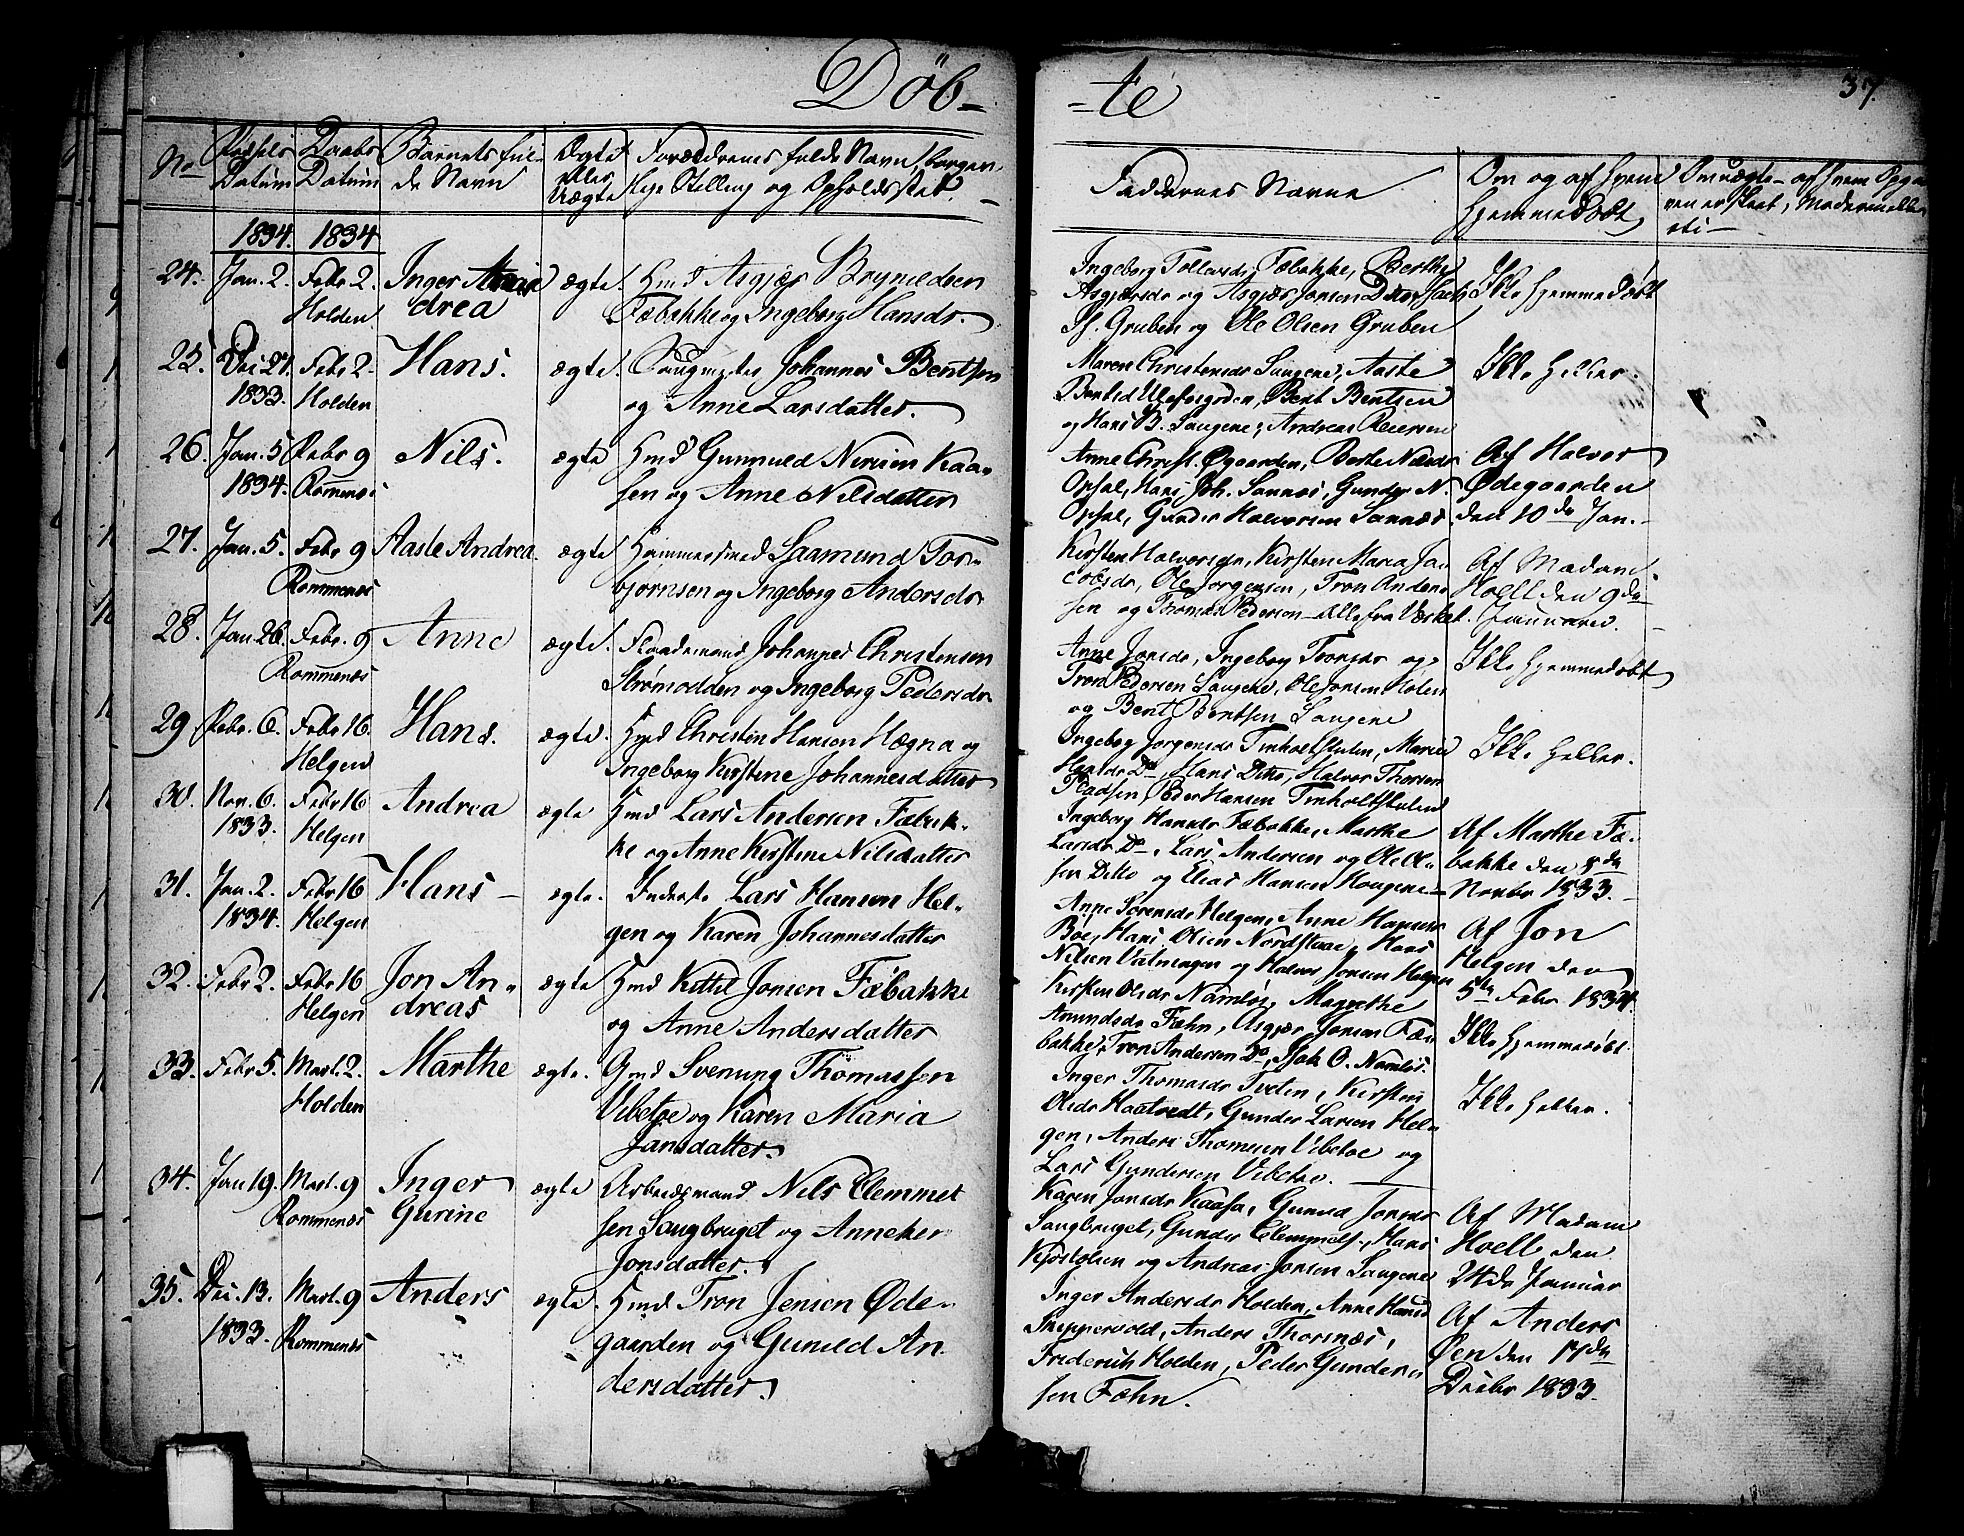 Døb-
-te
37.
No
Fødsels Datum
Daabs Datum
Barnets ful-
de Navn
Ægte
eller
Uægte
Forældrenes fulde Navn, borger-
lige Stilling og Opholdssted.
Faddernes Navne
Om og af hvem
Hjemmedøbt
1834. 1834
24. Jan. 2. Febr. 2. Holden
Inger
drea
ægte.
Hmd Asgjær Brynildsen
Fæbakke og Ingeborg Hansdr.
Ingeborg Tollevsdr Fæbakke, Berthe
Asgjærsdr og Asgjær Jonsen Ditto,
Gruben og Ole Olsen Gruben
Ikke Hjemmedøbt
25. Dec. 27. 1833. Febr. 2. Holden
Hans.
ægte.
Saugmester Johannes Bentsen
og Anne Larsdatter.
Maren Christensdr Saugene, Aaste
Bentsd Ulefosgoden, Bent Bentsen
og Hans B. Saugene, Andreas Reiersen
Ikke heller.
26. Jan. 5 1834. Febr 9 Rommenes
Nils.
ægte
Hmd Gunnuld Nirisen Kaa-
sen og Anne Nilsdatter
Anne Christ. Øgaarden, Berte Nilsdr
Opsal, Hans Joh. Sannes, Gunder N.
Opsal, Gunder Halvorsen Sannes.
Af Halvor
Ødegaarden
den 10de Jan.
27. Jan. 5. Febr 9 Rommenes
Aaste Andrea.
ægte
Hammersmed Saamund Tor-
bjørnsen og Ingeborg Andersdr
Kirsten Halvorsdr, Kirsten Maria Ja-
cobsdr, Ole Jørgensen, Tron Ander-
sen og Thomas Pedersen - alle fra Værket.
Af Madam
Hoell den 9de
Januarii.
28. Jan. 26. Febr. 9 Rommenes
Anne
ægte.
Flaademand Johannes Christensen
Strømodden og Ingeborg Pedersdr.
Anne Jonsdr, Ingeborg Tronsdr og
Tron Pedersen Saugene, Ole Jonsen Holen
og Bent Bentsen Saugene
Ikke hjemmedøbt
29. Febr. 6. Febr 16. Helgen
Hans.
ægte.
Hmd Christen Hansen Hægna og
Ingeborg Kirstine Johannesdatter
Ingeborg Jørgensdr Tinholtstulen, Maria
Do, Hans Ditto, Halvor Thorsen
Peder Hansen Tinholtstulen
Ikke heller.
30. Nov. 6. 1833. Febr 16 Helgen
Andrea
ægte
Hmd Lars Andersen Fæbak-
ke og Anne Kirstine Nilsdatter
Ingeborg Hansdr Fæbakke, Marthe
Larsdr Do, Lars Andersen og Ole Ol-
sen Ditto og Elias Hansen Haugene
Af Marthe Fæ-
bakke den 8da
Novbr 1833.
31. Jan. 2. 1834. Febr 16 Helgen
Hans -
ægte.
Inderste Lars Hansen Hel-
gen og Karen Johannesdatter
Anne Sørensdr Helgen, Anne Hansdr
Bøe, Hans Olsen Nordstaae, Hans
Nilsen Valmagen og Halvor Jonsen Helgen
Af Jon
Helgen den
5te Febr 1834.
32. Febr 2. Febr 16 Helgen
Jon An-
dreas
ægte
Hmd Kittil Jonsen Fæbakke
og Anne Andersdatter
Kirsten Olsdr Namløs, Magrethe
Amundsdr Fæhn, Asgjær Jonsen Fæ-
bakke, Tron Andersen Do, Isak O. Namløs.
Ikke hjemmedøbt.
33. Febr 5. Mart. 2. Holden
Marthe
ægte.
Gmd Svenung Thomassen
Vibetoe og Karen Maria
Jansdatter.
Inger Thomasdr Tveten, Kirsten
Olsdr Hoatvedt, Gunder Larsen Hel-
gen, Anders Thomesen Vibetoe og
Lars Gundersen Vibetoe.
Ikke heller.
34. Jan 19. Mart. 9 Rommenes
Inger
Gurine
ægte
Arbeidsmand Nils Clemmet
sen Saugbruget og Anneker
Jonsdatter.
Karen Jonsdr Kaasa, Gunild Jonsdr
Saugbruget, Gunder Clemmets., Hans
Kjøstolsen og Andreas Jonsen Saugene
Af Madam
Hoell den
24de Januar
35. Dec. 13. 1833. Mart. 9 Rommenes
Anders
ægte.
Hmd Tron Jensen Øde-
gaarden og Gunild An-
dersdatter.
Inger Andersdr Holden, Anne Hansd
Skippervold, Anders Thorsnes,
Friderich Holden, Peder Gunder-
sen Fæhn.
Af Anders
Øen den 17de
Decbr 1833.